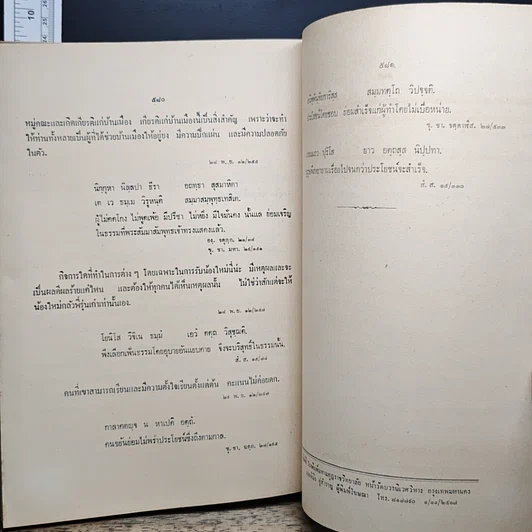 ๕๘๐
หมู่คณะและเกิดเกียรติแก่บ้านเมือง เกียรติแก่บ้านเมืองนี้เป็นสิ่งสำคัญ เพราะว่าจะทำ
ให้ท่านทั้งหลายเป็นผู้ที่ได้ช่วยบ้านเมืองให้อยู่ยง มีความปึกแผ่น และมีความปลอดภัย
ในตัว.
๒๘ พ.ย. ๑๒/๒๕๕
นิกฺกุหา นิลฺลปา ธีรา อถทฺธา สุสมาหิตา
เต เว ธมฺเม วิรูหนฺติ สมฺมาสมฺพุทฺธเทสิเต.
ผู้ไม่คดโกง ไม่พูดเพ้อ มีปรีชา ไม่หยิ่ง มีใจมั่นคง นั้นแล ย่อมเจริญ
ในธรรมที่พระสัมมาสัมพุทธเจ้าทรงแสดงแล้ว.
องฺ. จตุกฺก. ๒๑/๓๔
กิจการใดที่ทำในการต่าง ๆ โดยเฉพาะในการรับน้องใหม่นี่น่ะ มีเหตุผลและจะ
เป็นผลดีผลร้ายแค่ไหน และต้องให้ทุกคนได้เห็นเหตุผลนั้น ไม่ใช่ว่าสักแต่จะให้
น้องใหม่กลัวพี่รุ่นเก่าเท่านั้นเอง.
๒๘ พ.ย. ๑๒/๒๕๗
โยนิโส วิจิเน ธมฺมํ เอวํ ตตฺถ วิสุชฺฌติ.
พึงเลือกเฟ้นธรรมโดยอุบายอันแยบคาย จึงจะบริสุทธิ์ในธรรมนั้น.
สํ. ส. ๑๕/๗๘
คนที่เขาสามารถเรียนและมีความตั้งใจเรียนตั้งแต่ต้น คะแนนไม่ค่อยตก.
๒๘ พ.ย. ๑๒/๒๕๗
กาลาคตญฺจ น หาเปติ อตฺถํ.
คนขยันย่อมไม่พร่าประโยชน์ซึ่งถึงตามกาล.
๕๘๑
สมฺมทตฺโถ วิปจฺจติ.
โดยชอบ ย่อมสำเร็จแก่ผู้ทำโดยไม่เบื่อหน่าย.
ขุ. ชา. จตฺตาฬีส. ๒๗/๕๓๓
ปุริโส ยาว อตฺถสฺส นิปฺปทา.
พยายามเรื่อยไปจนกว่าประโยชน์จะสำเร็จ.
สํ. ส. ๑๕/๓๓๐
หน้าวัดบวรนิเวศวิหาร กรุงเทพมหานคร
ผู้พิมพ์โฆษณา โทร.